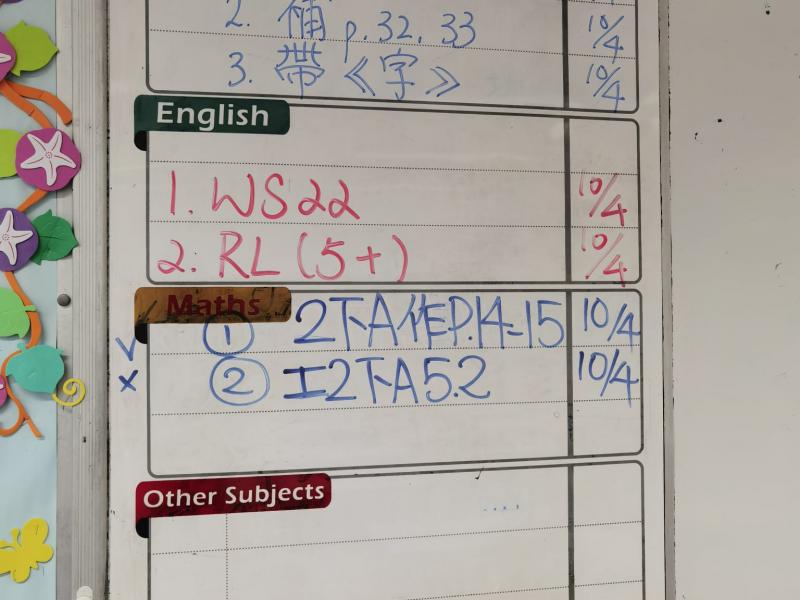 2. 補 p.32, 33 10/4
3. 帶《字》 10/4
English
1. WS22 10/4
2. RL (5+) 10/4
Maths
✓ ① 2下A作P.14-15 10/4
× ② 工2下A5.2 10/4
Other Subjects